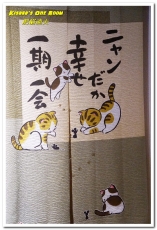 Kitaro's One Room
ニャン
だか
幸せ
一期一会